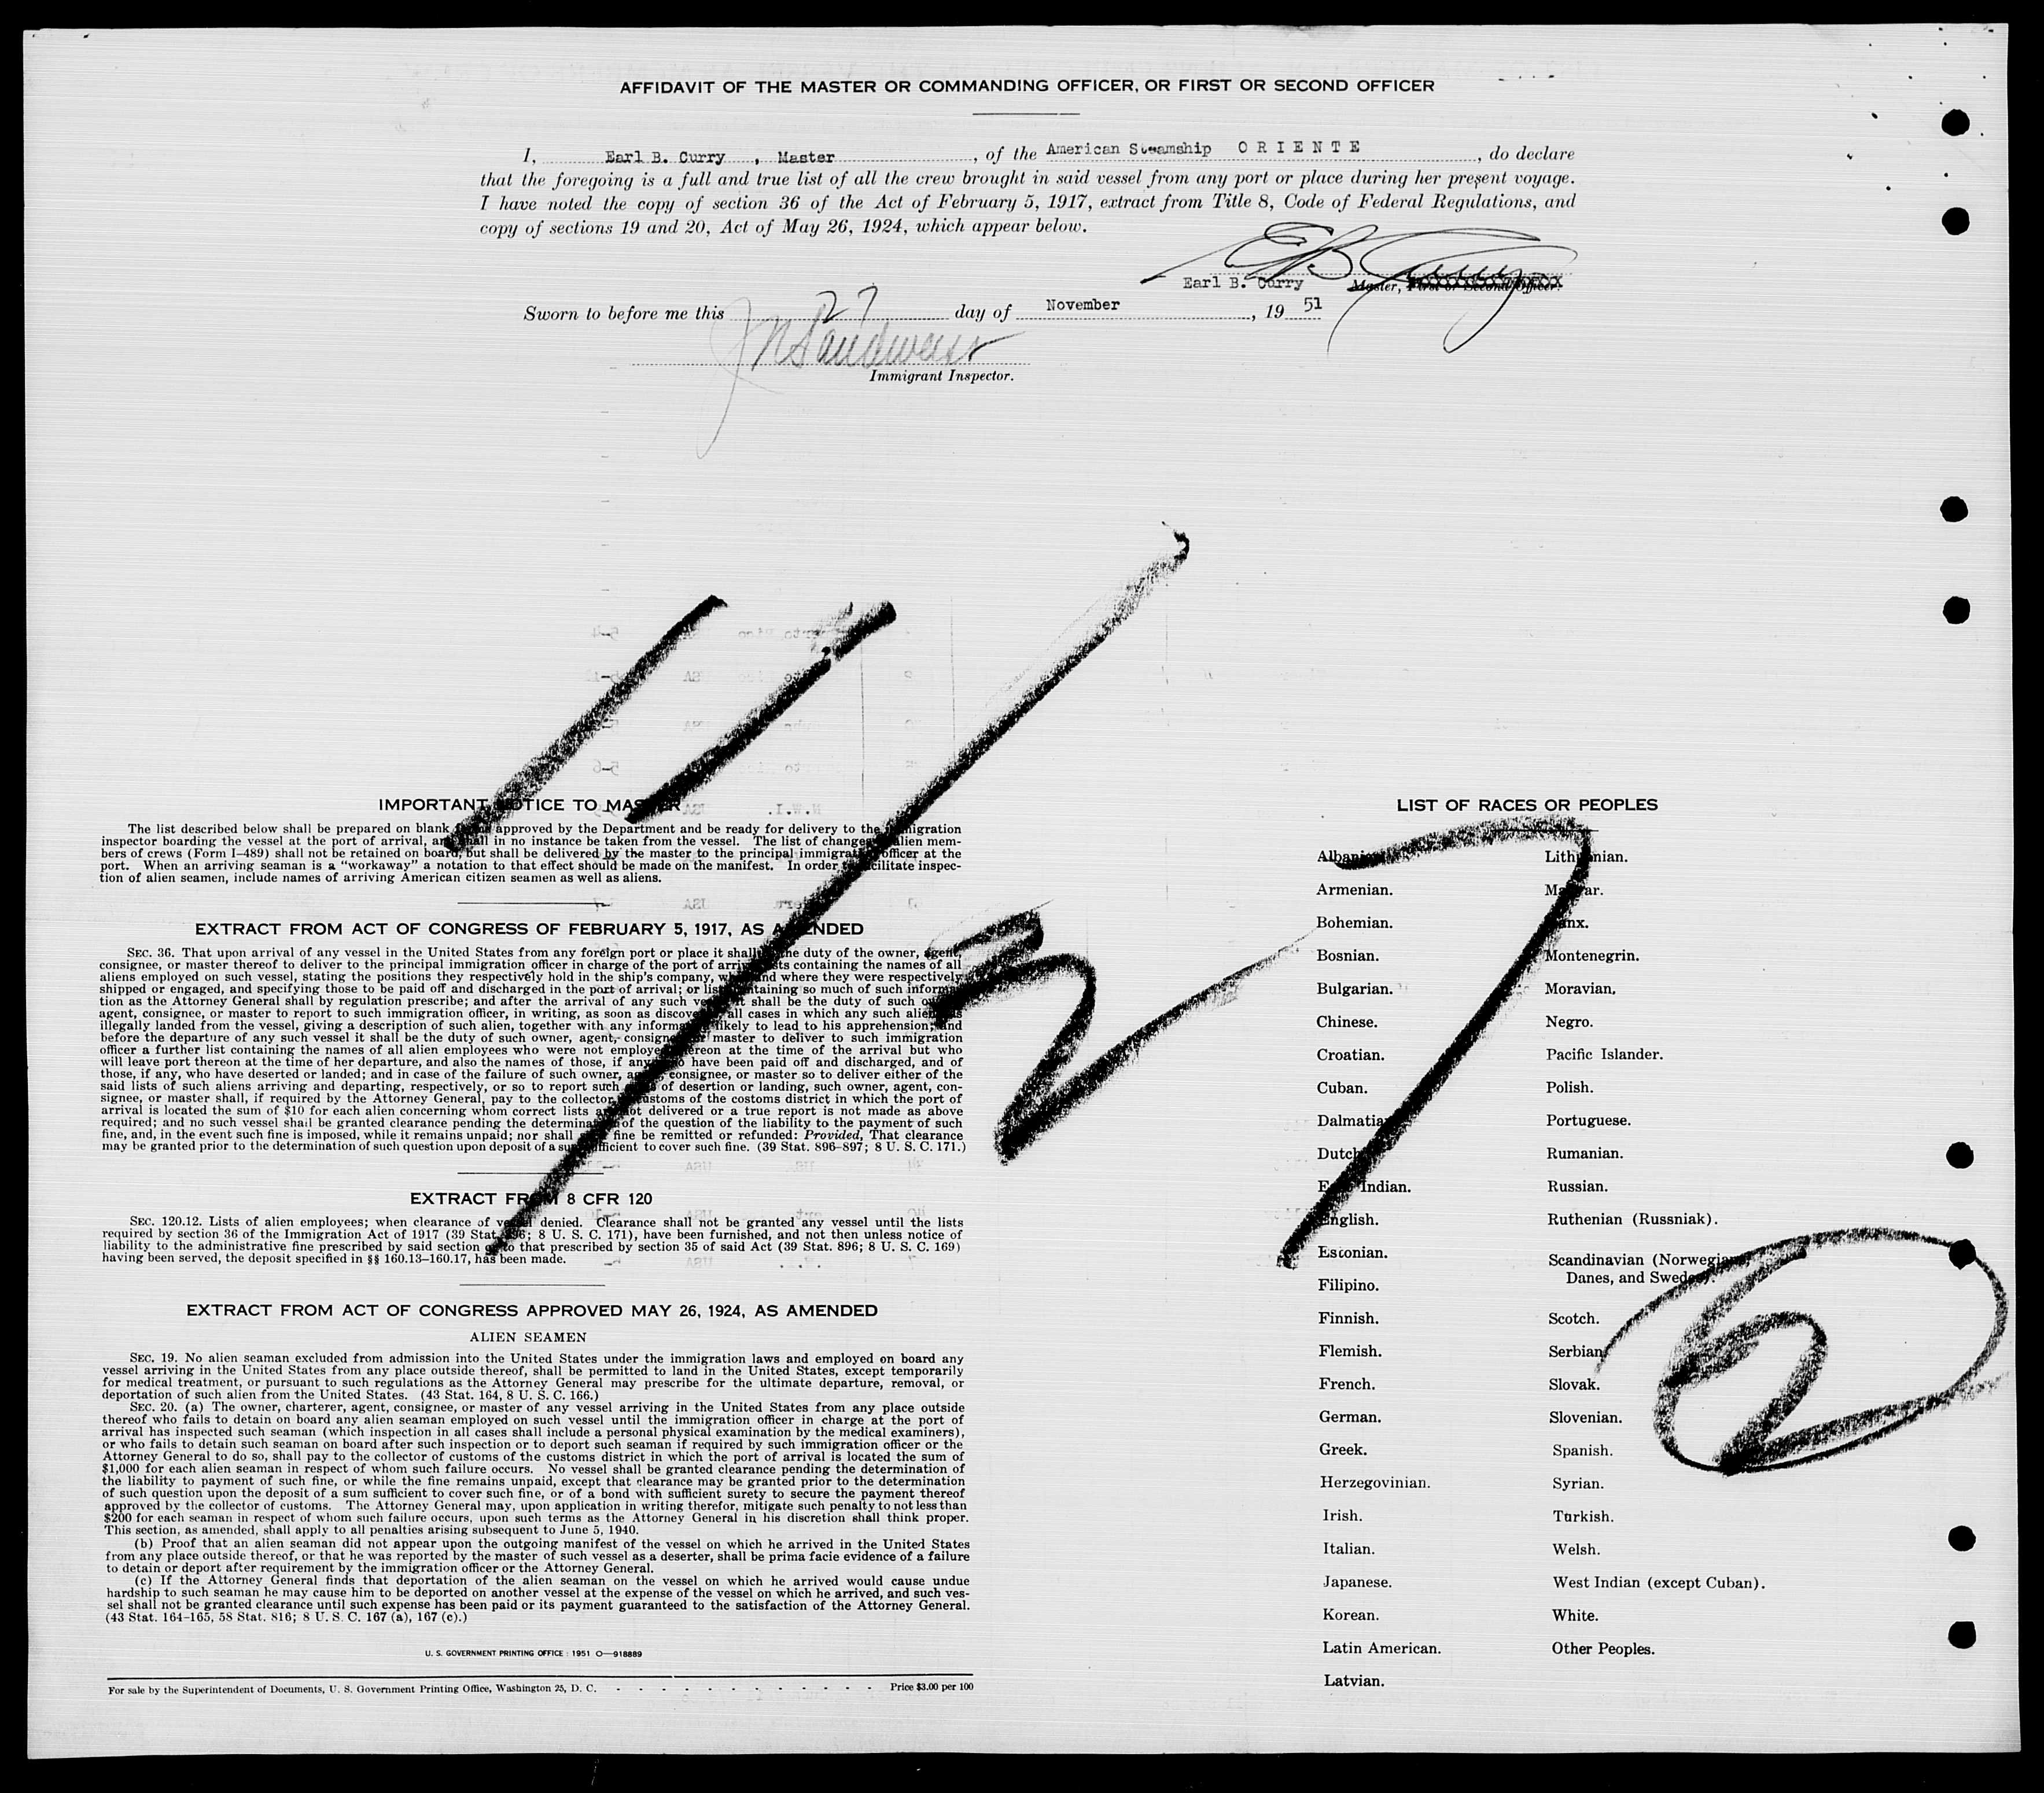 AFFIDAVIT OF THE MASTER OR COMMANDING OFFICER, OR FIRST OR SECOND OFFICER
I, Earl B. Curry , Master , of the American Steamship O R I E N T E , do declare
that the foregoing is a full and true list of all the crew brought in said vessel from any port or place during her present voyage.
I have noted the copy of section 36 of the Act of February 5, 1917, extract from Title 8, Code of Federal Regulations, and
copy of sections 19 and 20, Act of May 26, 1924, which appear below.
EB Curry
Earl B. Curry Master, First or Second Officer.
Sworn to before me this 27 day of November , 19 51
Immigrant Inspector.
11/27
IMPORTANT NOTICE TO MASTER
The list described below shall be prepared on blank forms approved by the Department and be ready for delivery to the immigration
inspector boarding the vessel at the port of arrival, and shall in no instance be taken from the vessel. The list of changes alien mem-
bers of crews (Form I-489) shall not be retained on board, but shall be delivered by the master to the principal immigration officer at the
port. When an arriving seaman is a "workaway" a notation to that effect should be made on the manifest. In order to facilitate inspec-
tion of alien seamen, include names of arriving American citizen seamen as well as aliens.
EXTRACT FROM ACT OF CONGRESS OF FEBRUARY 5, 1917, AS AMENDED
SEC. 36. That upon arrival of any vessel in the United States from any foreign port or place it shall be the duty of the owner, agent,
consignee, or master thereof to deliver to the principal immigration officer in charge of the port of arrival lists containing the names of all
aliens employed on such vessel, stating the positions they respectively hold in the ship's company, when and where they were respectively
shipped or engaged, and specifying those to be paid off and discharged in the port of arrival; or lists containing so much of such informa-
tion as the Attorney General shall by regulation prescribe; and after the arrival of any such vessel it shall be the duty of such owner,
agent, consignee, or master to report to such immigration officer, in writing, as soon as discovered, all cases in which any such alien has
illegally landed from the vessel, giving a description of such alien, together with any information likely to lead to his apprehension; and
before the departure of any such vessel it shall be the duty of such owner, agent, consignee, or master to deliver to such immigration
officer a further list containing the names of all alien employees who were not employed thereon at the time of the arrival but who
will leave port thereon at the time of her departure, and also the names of those, if any, who have been paid off and discharged, and of
those, if any, who have deserted or landed; and in case of the failure of such owner, agent, consignee, or master so to deliver either of the
said lists of such aliens arriving and departing, respectively, or so to report such cases of desertion or landing, such owner, agent, con-
signee, or master shall, if required by the Attorney General, pay to the collector of customs of the costoms district in which the port of
arrival is located the sum of $10 for each alien concerning whom correct lists are not delivered or a true report is not made as above
required; and no such vessel shall be granted clearance pending the determination of the question of the liability to the payment of such
fine, and, in the event such fine is imposed, while it remains unpaid; nor shall such fine be remitted or refunded: Provided, That clearance
may be granted prior to the determination of such question upon deposit of a sum sufficient to cover such fine. (39 Stat. 896-897; 8 U. S. C. 171.)
EXTRACT FROM 8 CFR 120
SEC. 120.12. Lists of alien employees; when clearance of vessel denied. Clearance shall not be granted any vessel until the lists
required by section 36 of the Immigration Act of 1917 (39 Stat. 896; 8 U. S. C. 171), have been furnished, and not then unless notice of
liability to the administrative fine prescribed by said section or to that prescribed by section 35 of said Act (39 Stat. 896; 8 U. S. C. 169)
having been served, the deposit specified in §§ 160.13-160.17, has been made.
EXTRACT FROM ACT OF CONGRESS APPROVED MAY 26, 1924, AS AMENDED
ALIEN SEAMEN
SEC. 19. No alien seaman excluded from admission into the United States under the immigration laws and employed on board any
vessel arriving in the United States from any place outside thereof, shall be permitted to land in the United States, except temporarily
for medical treatment, or pursuant to such regulations as the Attorney General may prescribe for the ultimate departure, removal, or
deportation of such alien from the United States. (43 Stat. 164, 8 U. S. C. 166.)
SEC. 20. (a) The owner, charterer, agent, consignee, or master of any vessel arriving in the United States from any place outside
thereof who fails to detain on board any alien seaman employed on such vessel until the immigration officer in charge at the port of
arrival has inspected such seaman (which inspection in all cases shall include a personal physical examination by the medical examiners),
or who fails to detain such seaman on board after such inspection or to deport such seaman if required by such immigration officer or the
Attorney General to do so, shall pay to the collector of customs of the customs district in which the port of arrival is located the sum of
$1,000 for each alien seaman in respect of whom such failure occurs. No vessel shall be granted clearance pending the determination of
the liability to payment of such fine, or while the fine remains unpaid, except that clearance may be granted prior to the determination
of such question upon the deposit of a sum sufficient to cover such fine, or of a bond with sufficient surety to secure the payment thereof
approved by the collector of customs. The Attorney General may, upon application in writing therefor, mitigate such penalty to not less than
$200 for each seaman in respect of whom such failure occurs, upon such terms as the Attorney General in his discretion shall think proper.
This section, as amended, shall apply to all penalties arising subsequent to June 5, 1940.
(b) Proof that an alien seaman did not appear upon the outgoing manifest of the vessel on which he arrived in the United States
from any place outside thereof, or that he was reported by the master of such vessel as a deserter, shall be prima facie evidence of a failure
to detain or deport after requirement by the immigration officer or the Attorney General.
(c) If the Attorney General finds that deportation of the alien seaman on the vessel on which he arrived would cause undue
hardship to such seaman he may cause him to be deported on another vessel at the expense of the vessel on which he arrived, and such ves-
sel shall not be granted clearance until such expense has been paid or its payment guaranteed to the satisfaction of the Attorney General.
(43 Stat. 164-165, 58 Stat. 816; 8 U. S. C. 167 (a), 167 (c).)
U. S. GOVERNMENT PRINTING OFFICE : 1951 O—918889
For sale by the Superintendent of Documents, U. S. Government Printing Office, Washington 25, D. C. - - - - - - - - - - - - Price $3.00 per 100
LIST OF RACES OR PEOPLES
Albanian. Lithuanian.
Armenian. Magyar.
Bohemian. Manx.
Bosnian. Montenegrin.
Bulgarian. Moravian.
Chinese. Negro.
Croatian. Pacific Islander.
Cuban. Polish.
Dalmatian. Portuguese.
Dutch. Rumanian.
East Indian. Russian.
English. Ruthenian (Russniak).
Estonian. Scandinavian (Norwegians,
Filipino. Danes, and Swedes).
Finnish. Scotch.
Flemish. Serbian.
French. Slovak.
German. Slovenian.
Greek. Spanish.
Herzegovinian. Syrian.
Irish. Turkish.
Italian. Welsh.
Japanese. West Indian (except Cuban).
Korean. White.
Latin American. Other Peoples.
Latvian.
2